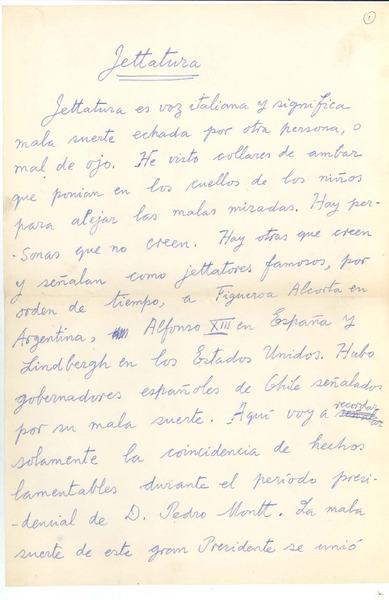 1
Jettatura
Jettatura es voz italiana y significa
mala suerte echada por otra persona, o
mal de ojo. He visto collares de ambar
que ponian en los cuellos de los niños
para alejar las malas miradas. Hay per-
-sonas que no creen. Hay otras que creen
y señalan como jettatores famosos, por
orden de tiempo, a Figueroa Alcorta en
Argentina, Alfonso XIII en España y
Lindbergh en los Estados Unidos. Hubo
gobernadores españoles de Chile señalados
por su mala suerte. Aquí voy a recordar
solamente la coincidencia de hechos
lamentables durante el período presi-
-dencial de D. Pedro Montt. La mala
suerte de este gran Presidente se unió